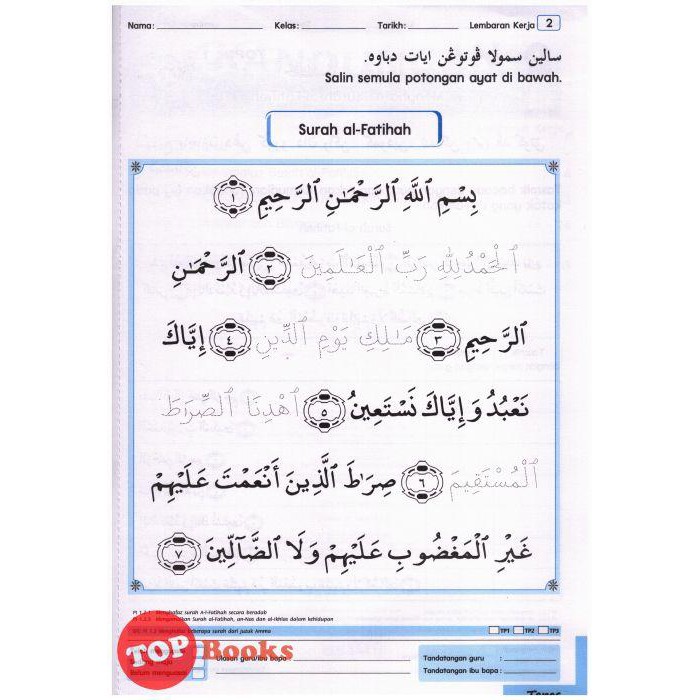 Nama: Kelas: Tarikh: Lembaran Kerja 2
سالين سمولا ڤوتوڠن ايات دباوه.
Salin semula potongan ayat di bawah.
Surah al-Fatihah
بِسْمِ ٱللَّهِ ٱلرَّحْمَـٰنِ ٱلرَّحِيمِ ١
ٱلْحَمْدُ لِلَّهِ رَبِّ ٱلْعَـٰلَمِينَ ٢ ٱلرَّحْمَـٰنِ
ٱلرَّحِيمِ ٣ مَـٰلِكِ يَوْمِ ٱلدِّينِ ٤ إِيَّاكَ
نَعْبُدُ وَإِيَّاكَ نَسْتَعِينُ ٥ ٱهْدِنَا ٱلصِّرَٰطَ
ٱلْمُسْتَقِيمَ ٦ صِرَٰطَ ٱلَّذِينَ أَنْعَمْتَ عَلَيْهِمْ
غَيْرِ ٱلْمَغْضُوبِ عَلَيْهِمْ وَلَا ٱلضَّآلِّينَ ٧
PI 1.2.1 Menghafaz surah Al-Fatihah secara beradab
PI 1.2.3 Mengamalkan Surah al-Fatihah, an-Nas dan al-Ikhlas dalam kehidupan
beberapa surah dari juzuk Amma TP1 TP2 TP3
TOP Books
Ulasan guru/ibu bapa : Tandatangan guru :
Belum menguasai Tandatangan ibu bapa :